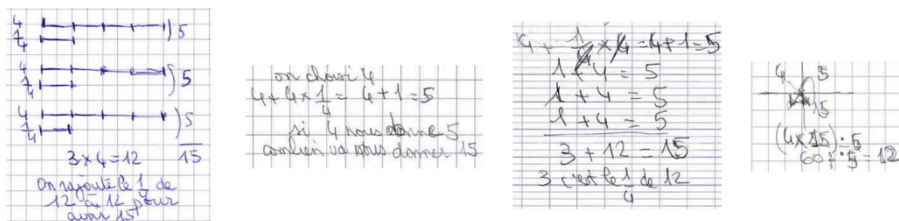 4
1/4
) 5
4
1/4
) 5
4
1/4
) 5
3 x 4 = 12 15
On rajoute le 1/4 de
12 à 12 pour
avoir 15
on choisi 4
4 + 4 x 1/4 = 4 + 1 = 5
si 4 nous donne 5
combien va nous donner 15
4 + 1/4 x 4 = 4 + 1 = 5
1 + 4 = 5
1 + 4 = 5
1 + 4 = 5
3 + 12 = 15
3 c'est le 1/4 de 12
4 5
15
(4 x 15) : 5
60 : 5 = 12